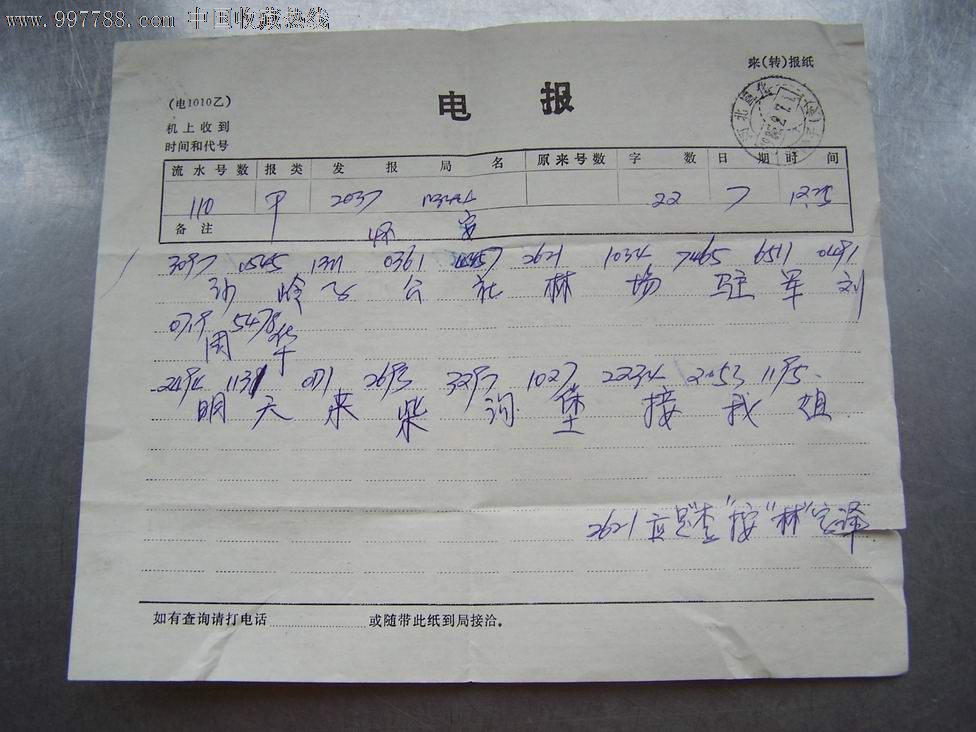 www.997788.com 中国收藏热线
来(转)报纸
(电1010乙)
电 报
机上收到
时间和代号
流水号数 报类 发报局名 原来号数 字数 日期 时间
110 2037 22 7 1225
备注 怀安
3097 0545 0361 2621 1034 7465 6511 0491
沙岭子公社林场驻军刘
5478
国华
2494 1131 2693 1027 2234 2053 1195
明天来柴沟堡接我姐
2621应是"查"按"林"字译
如有查询请打电话 或随带此纸到局接洽。